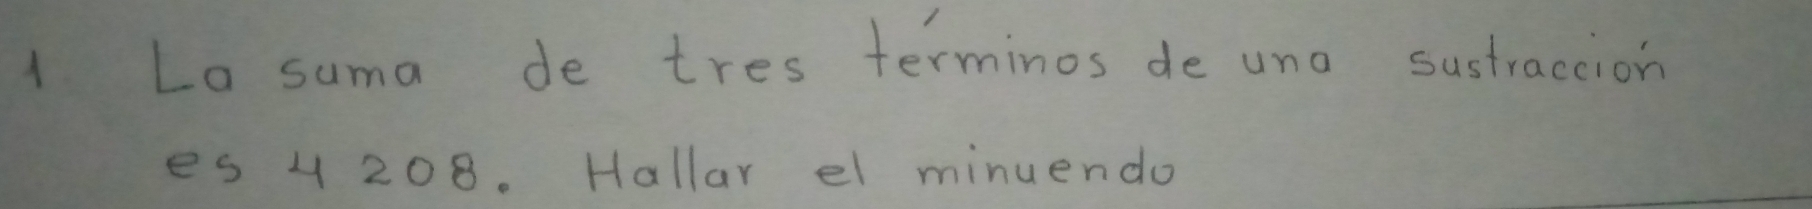 1 La suma de tres términos de una sustracción
es 4208. Hallar el minuendo